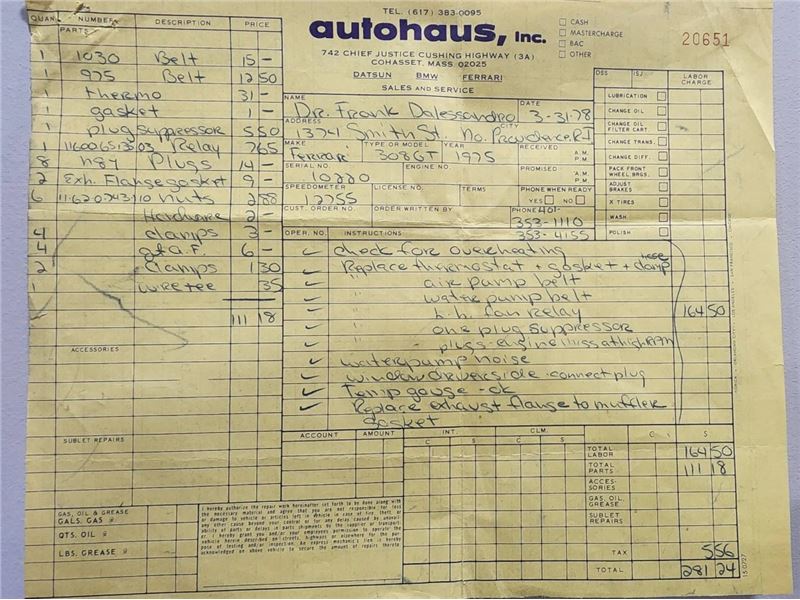 TEL. (617) 383-0095
autohaus, Inc.
742 CHIEF JUSTICE CUSHING HIGHWAY (3A)
COHASSET, MASS. 02025
DATSUN BMW FERRARI
SALES AND SERVICE
CASH
MASTERCHARGE
BAC
OTHER
20651
QUAN. NUMBER DESCRIPTION PRICE
PARTS
1 1030 Belt 15 -
1 975 Belt 12 50
1 thermo 31 -
gasket 1 -
1 plug suppressor 5 50
1 Relay 7 65
8 Plugs 14 -
2 Exh. Flange gasket 9 -
6 nuts 2 88
Hardware 2 -
4 clamps 3 -
4 6 -
2 clamps 1 30
1 wire tee 35
111 18
ACCESSORIES
SUBLET REPAIRS
GAS, OIL & GREASE
GALS. GAS @
QTS. OIL @
LBS. GREASE @
NAME Dr. Frank Dalessandro DATE 3-31-78
ADDRESS 1374 Smith St. CITY No. Providence, R.I
MAKE Ferrari TYPE OR MODEL 308GT YEAR 1975 RECEIVED A.M. P.M.
SERIAL NO. 10220 ENGINE NO. PROMISED A.M. P.M.
SPEEDOMETER 12755 LICENSE NO. TERMS PHONE WHEN READY YES NO
CUST. ORDER NO. ORDER WRITTEN BY PHONE 401-
353-1110
353-4155
OPER. NO. INSTRUCTIONS:
check for overheating
Replace thermostat + gasket + hose clamp
" air pump belt
" water pump belt
" h.h. fan relay
" one plug suppressor
" plugs-engine miss at high RPM
water pump noise
window drivers side - connect plug
Temp gauge - ok
Replace exhaust flange to muffler
gasket
LABOR CHARGE
LUBRICATION
CHANGE OIL
CHANGE OIL FILTER CART
CHANGE TRANS.
CHANGE DIFF.
PACK FRONT WHEEL BRGS.
ADJUST BRAKES
X TIRES
WASH
POLISH
164 50
ACCOUNT AMOUNT INT. CLM.
C S C S C S
TOTAL LABOR 164 50
TOTAL PARTS 111 18
ACCESSORIES
GAS, OIL, GREASE
SUBLET REPAIRS
TAX 5 56
TOTAL 281 24
I hereby authorize the repair work hereinafter set forth to be done along with
the necessary material and agree that you are not responsible for loss
or damage to vehicle or articles left in vehicle in case of fire, theft or
any other cause beyond your control or for any delays caused by unavail-
ability of parts or delays in parts shipments by the supplier or transport-
er. I hereby grant you and/or your employees permission to operate the
vehicle herein described on streets, highways or elsewhere for the pur-
pose of testing and/or inspection. An express mechanic's lien is hereby
acknowledged on above vehicle to secure the amount of repairs thereto